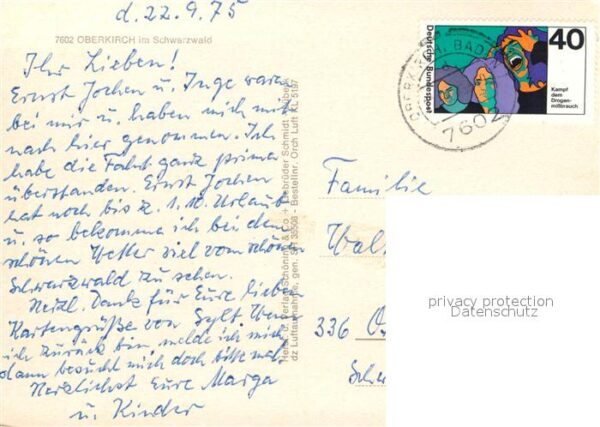 d. 22.9.75
7602 OBERKIRCH im Schwarzwald
Ihr Lieben!
Ernst Jochen u. Inge waren
bei mir u. haben mich mit
nach hier genommen. Ich
habe die Fahrt ganz prima
überstanden. Ernst Jochen
hat noch bis z. 1.10. Urlaub
u. so bekomme ich bei dem
schönen Wetter viel vom schönen
Schwarzwald zu sehen.
Herzl. Dank für Eure lieben
Kartengrüße von Sylt. Wenn
ich zurück bin, melde ich mich,
dann besucht mich doch bitte mal.
Herzlichst Eure Marga
u. Kinder
Verlag Schöning & Co. + Gebrüder Schmidt, Lübeck
dz Luftaufnahme, gen. SH 35508 - Bestellnr. Orch Luft KL 5197
Deutsche Bundespost
40
Kampf
dem
Drogen-
mißbrauch
7602
Familie
336
privacy protection
Datenschutz